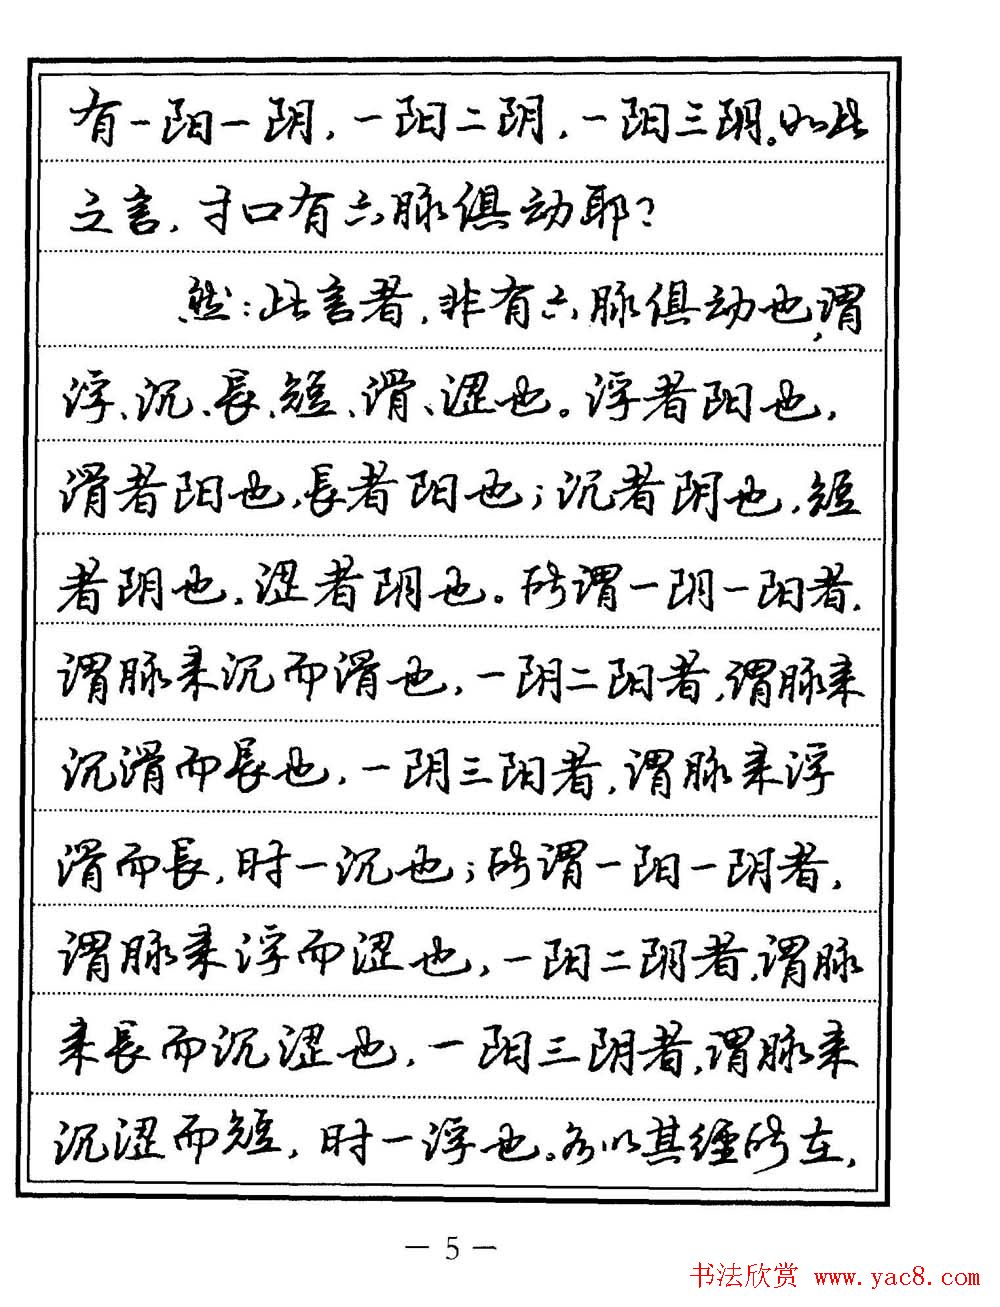 有一阳一阴，一阳二阴，一阳三阴。如此
之言，寸口有六脉俱动耶？
然：此言者，非有六脉俱动也，谓
浮、沉、長、短、滑、涩也。浮者阳也，
滑者阳也，長者阳也；沉者阴也，短
者阴也，涩者阴也。所谓一阴一阳者，
谓脉来沉而滑也，一阴二阳者，谓脉来
沉滑而長也，一阴三阳者，谓脉来浮
滑而長，时一沉也；所谓一阳一阴者，
谓脉来浮而涩也，一阳二阴者，谓脉
来長而沉涩也，一阳三阴者，谓脉来
沉涩而短，时一浮也。各以其经所在，
— 5 —
书法欣赏 www.yac8.com